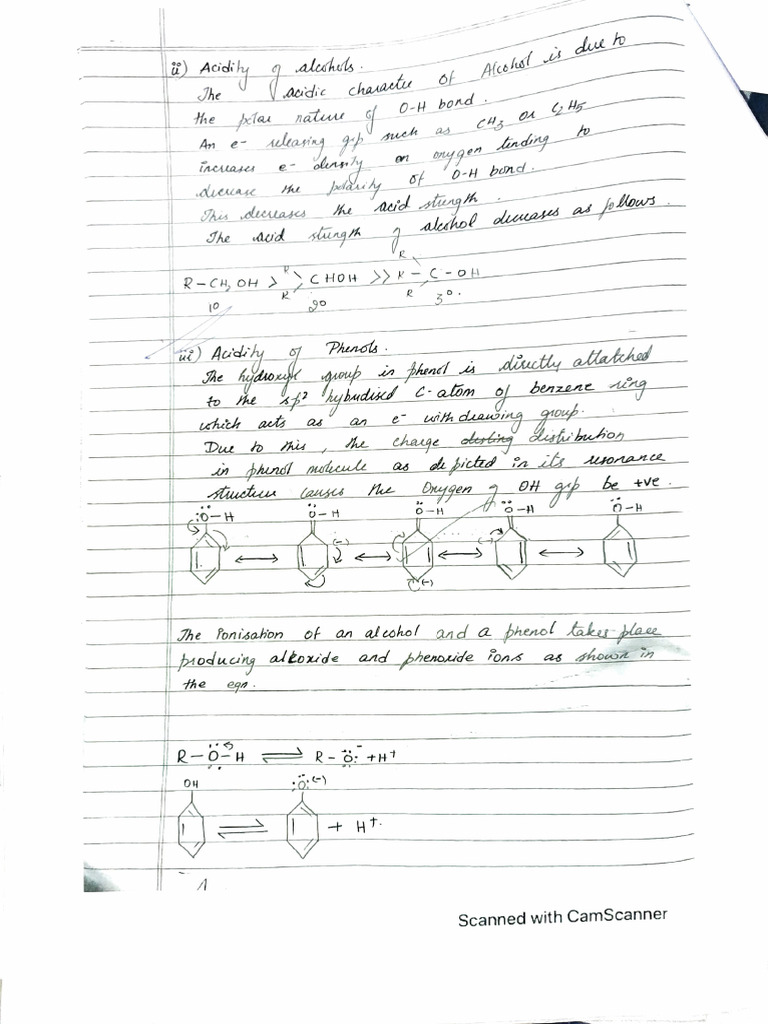 ii) Acidity of alcohols.
The acidic character of Alcohol is due to
the polar nature of O-H bond.
An e- releasing grp such as CH3 or C2H5
increases e- density on oxygen tending to
decrease the polarity of O-H bond.
This decreases the acid strength.
The acid strength of alcohol decreases as follows.
R-CH2OH > R R CHOH >> R R R - C - OH
1° 2° 3°.
iii) Acidity of Phenols.
The hydroxyl group in phenol is directly attatched
to the sp2 hybridised C-atom of benzene ring
which acts as an e- withdrawing group.
Due to this, the charge distribution
in phenol molecule as depicted in its resonance
structure causes the Oxygen of OH grp be +ve.
:Ö-H Ö-H Ö-H Ö-H Ö-H
(-) (-) (-)
The Ionisation of an alcohol and a phenol takes place
producing alkoxide and phenoxide ions as shown in
the eqn.
R-Ö-H ⇌ R-Ö:- + H+
OH :Ö:(-)
⇌ + H+.
Scanned with CamScanner